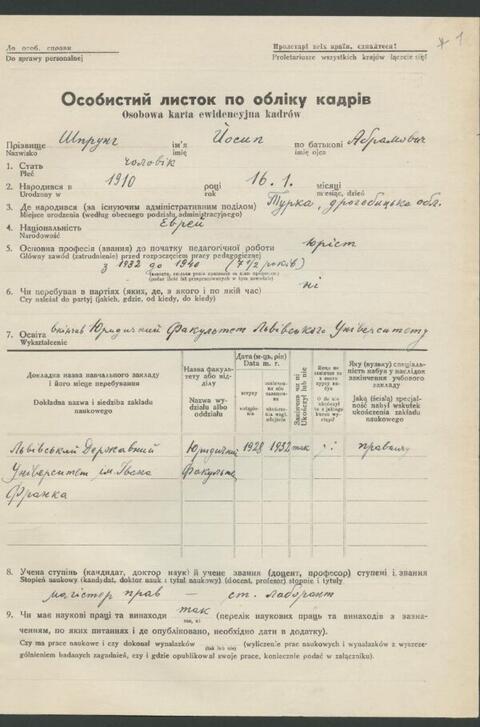 До особ. справи
Do sprawy personalnej
Пролетарі всіх країн, єднайтеся!
Proletariusze wszystkich krajów łączcie się!
1
Особистий листок по обліку кадрів
Osobowa karta ewidencyjna kadrów
Прізвище Шпрунг ім'я Йосип по батькові Абрамович
Nazwisko imię imię ojca
1. Стать чоловік
Płeć
2. Народився в 1910 році 16.1. місяці
Urodzony w rok miesiąc, dzień
3. Де народився (за існуючим адміністративним поділом) Турка, дрогобицька обл.
Miejsce urodzenia (według obecnego podziału administracyjnego)
4. Національність Єврей
Narodowość
5. Основна професія (звання) до початку педагогічної роботи юріст
Główny zawód (zatrudnienie) przed rozpoczęciem pracy pedagogicznej
з 1932 до 1940 (7 1/2 років)
6. Чи перебував в партіях (яких, де, з якого і по який час) ні
Czy należał do partyj (jakich, gdzie, od kiedy, do kiedy)
7. Освіта скінчив Юридичний Факультет Львівського Університету
Wykształcenie
Докладна назва навчального закладу і його місце перебування
Dokładna nazwa i siedziba zakładu naukowego
Назва факультету або відділу
Nazwa wydziału albo oddziału
Дата (м-ця, рік)
Data m. r.
вступу
Закінчив чи ні
Ukończył lub nie
Яку (вузьку) спеціальність набув у наслідок закінчення учбового закладу
Jaką (ścisłą) specjalność nabył wskutek ukończenia zakładu naukowego
Львівський Державний Юридичний 1928 1932 так правничу
Університет ім. Івана Факультет
Франка
8. Учена ступінь (кандидат, доктор наук) й учене звання (доцент, професор) ступені і звання
Stopień naukowy (kandydat, doktor nauk i tytuł naukowy) (docent, profesor) stopnie i tytuły
магістер прав — ст. лаборант
9. Чи має наукові праці та винаходи так (перелік наукових праць та винаходів з зазначенням, по яких питаннях і де опубліковано, необхідно дати в додатку).
так, ні
Czy ma prace naukowe i czy dokonał wynalazków (wyliczenie prac naukowych i wynalazków z wyszczególnieniem badanych zagadnień, czy i gdzie opublikował swoje prace, koniecznie podać w załączniku).
(tak lub nie)